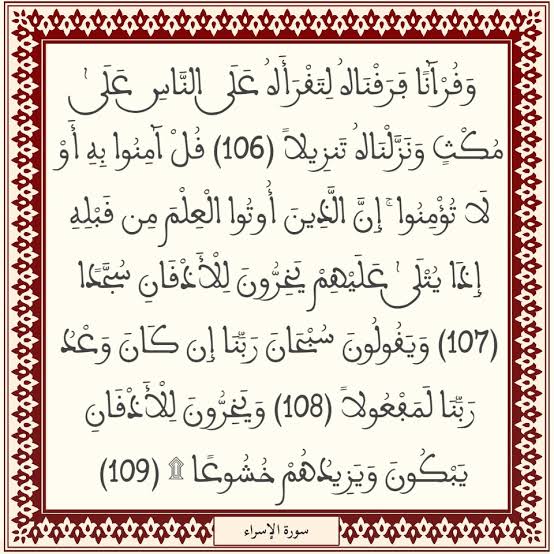 وَقُرْآنًا فَرَقْنَاهُ لِتَقْرَأَهُ عَلَى النَّاسِ عَلَىٰ
مُكْثٍ وَنَزَّلْنَاهُ تَنزِيلاً (106) قُلْ آمِنُوا بِهِ أَوْ
لَا تُؤْمِنُوا ۚ إِنَّ الَّذِينَ أُوتُوا الْعِلْمَ مِن قَبْلِهِ
إِذَا يُتْلَىٰ عَلَيْهِمْ يَخِرُّونَ لِلْأَذْقَانِ سُجَّدًا
(107) وَيَقُولُونَ سُبْحَانَ رَبِّنَا إِن كَانَ وَعْدُ
رَبِّنَا لَمَفْعُولاً (108) وَيَخِرُّونَ لِلْأَذْقَانِ
يَبْكُونَ وَيَزِيدُهُمْ خُشُوعًا ۩ (109)
سورة الإسراء